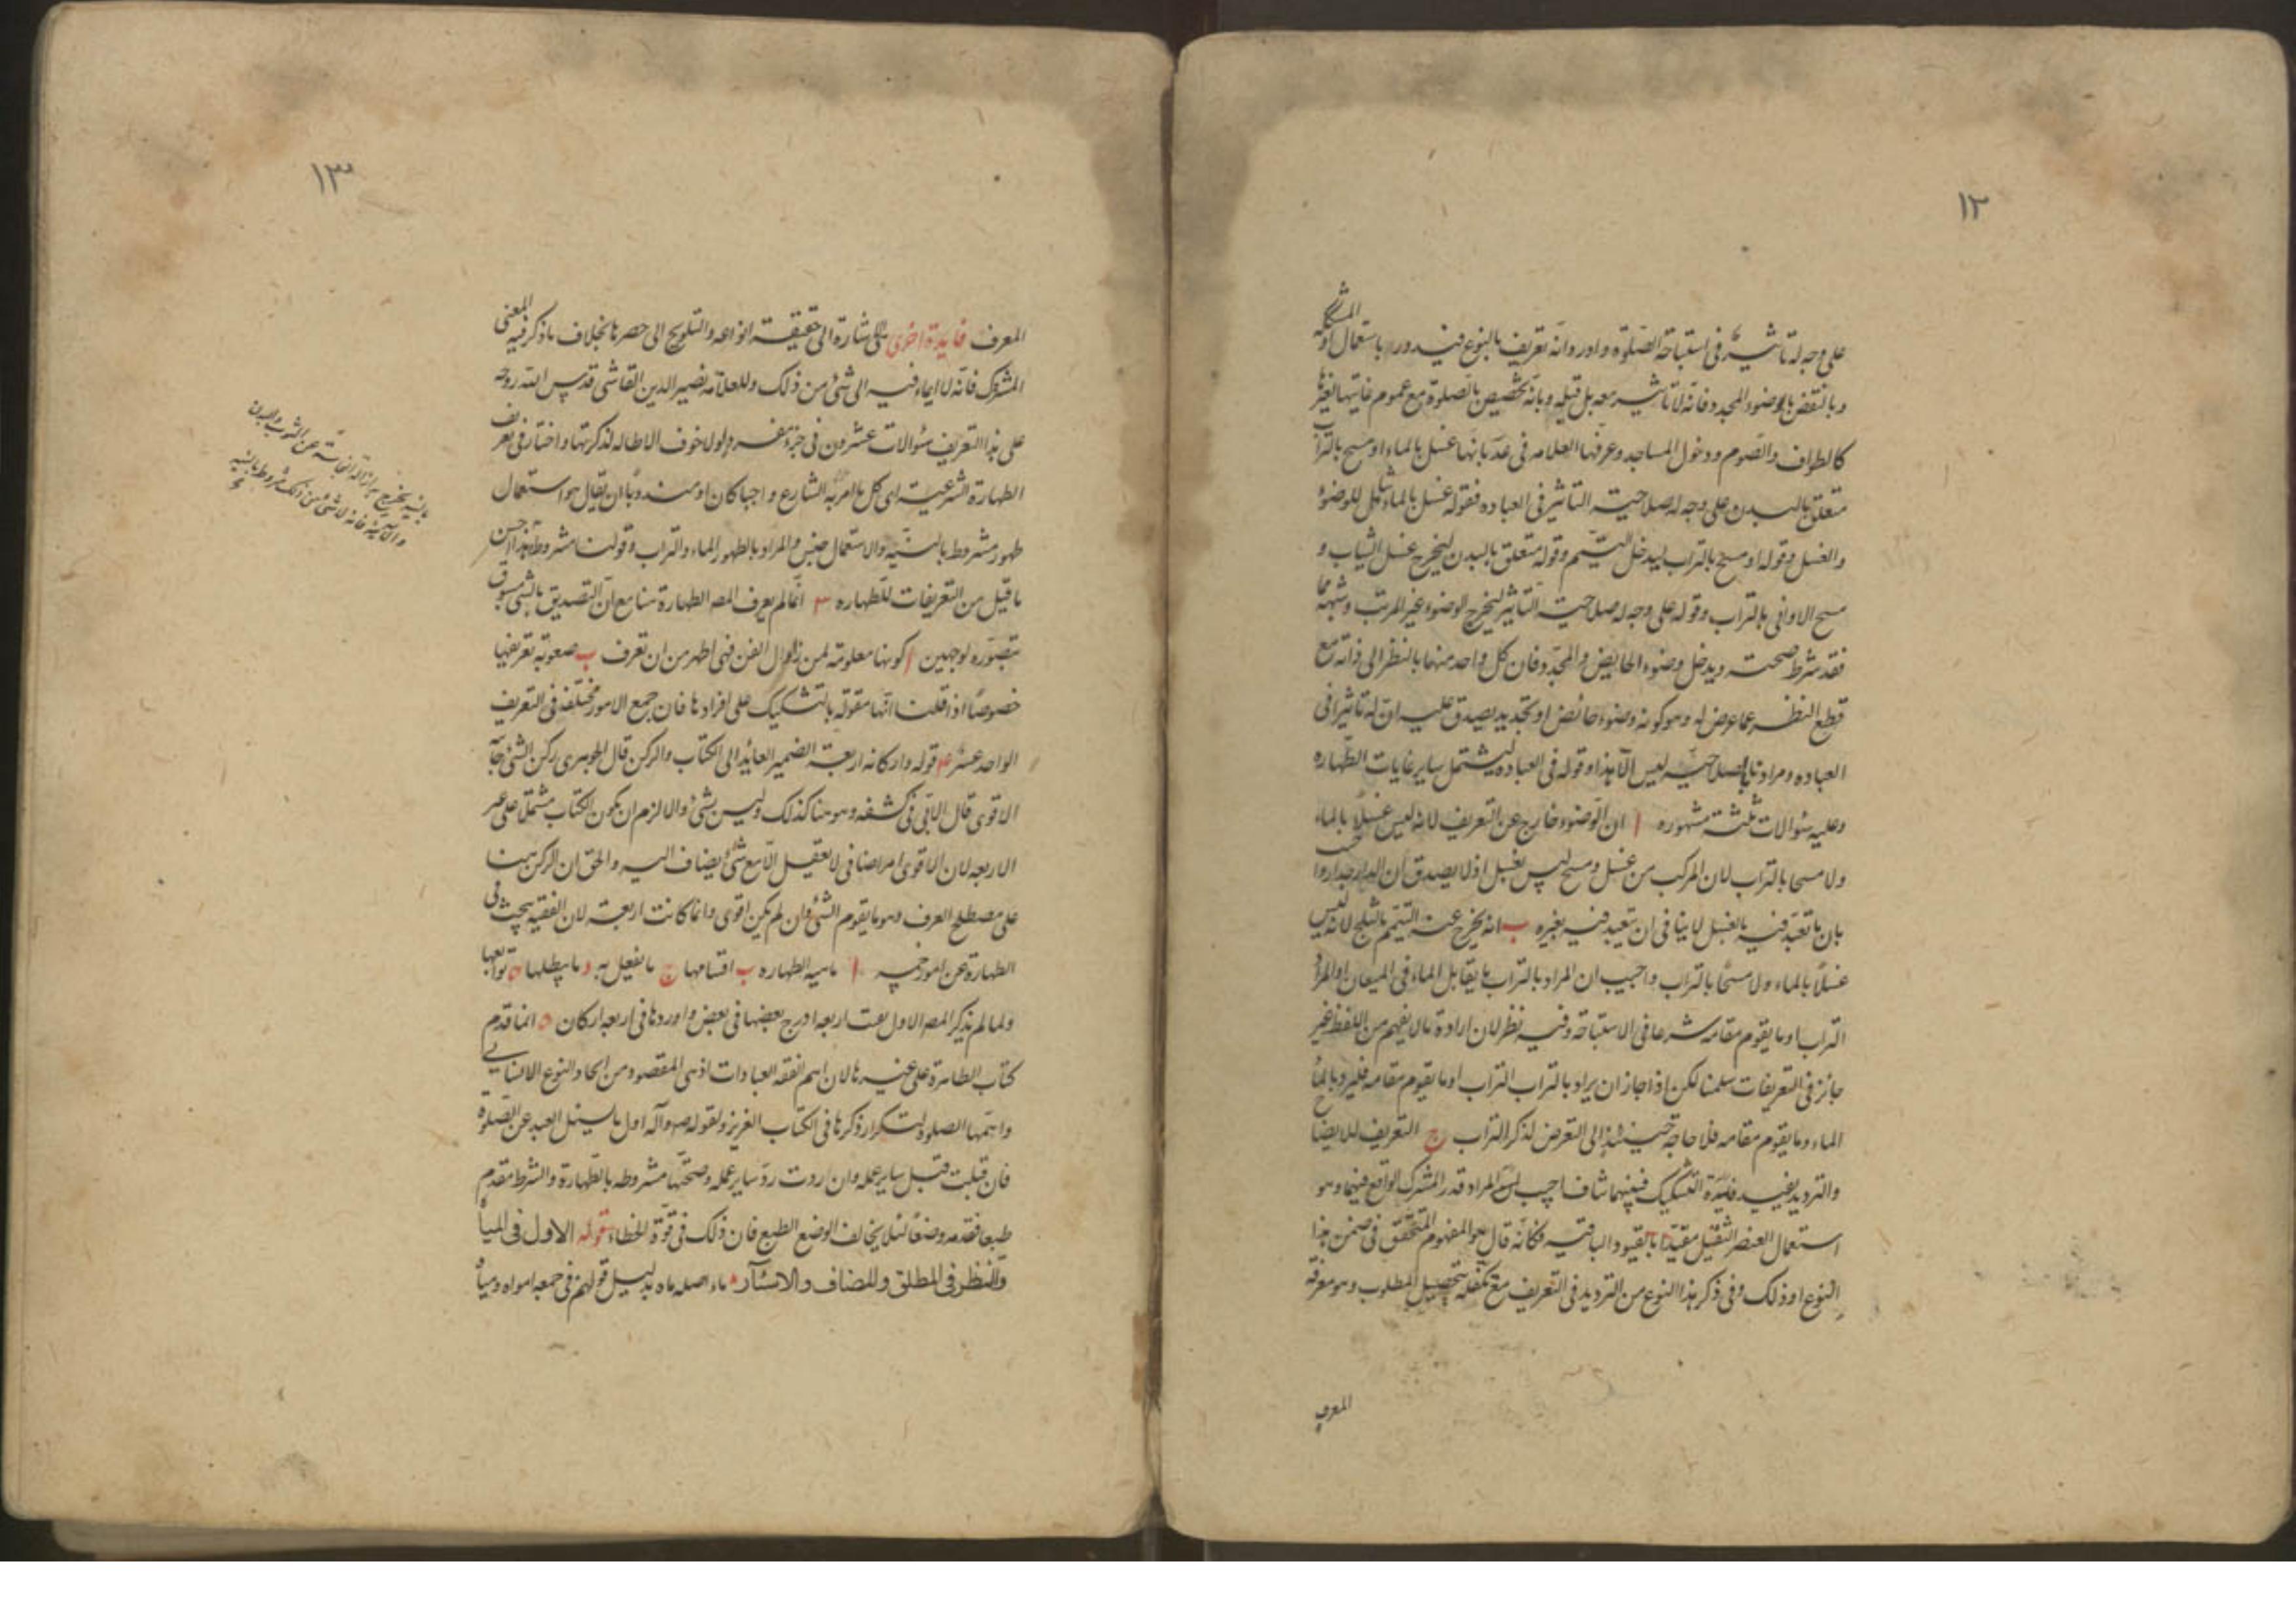 ١٢
على وجه له تأثير في استباحة الصلوة واورد انه تعريف بالنوع فيدور باستعمال اوله المشكك
وبالنقض بالوضوء المجدد فانه لا تأثير معه بل قبله وبانه تخصيص بالصلوة مع عموم غايتها لغيرها
كالطواف والصوم ودخول المساجد وعرفها العلامه في عد بانها غسل بالماء او مسح بالتراب
متعلق بالبدن على وجه له صلاحية التأثير في العباده فقوله غسل بالماء شمل للوضوء
والغسل وقوله او مسح بالتراب ليدخل التيمم وقوله متعلق بالبدن ليخرج غسل الثياب و
مسح الاواني بالتراب وقوله على وجه له صلاحية التأثير ليخرج الوضوء غير المرتب وشبهه مما
فقد شرط صحته ويدخل وضوء الحايض والمجدد فان كل واحد منهما بالنظر الى ذاته مع
قطع النظر عما عرض له وهو كونه وضوء حائض او تجديد يصدق عليه ان له تأثيرا في
العباده ومرادنا بالصلاحية ليس الا هذا وقوله في العباده ليشتمل ساير غايات الطهاره
وعليه سؤالات ثلثة مشهوره ا ان الوضوء خارج عن التعريف لانه ليس غسلا بالماء
ولا مسحا بالتراب لان المركب من غسل ومسح ليس بغسل اذ لا يصدق ان الدار جدار واجيب
بان ما تعبد فيه بالغسل لا ينافي ان تعبد فيه بغيره ب انه يخرج عنه التيمم بالثلج لانه ليس
غسلا بالماء ولا مسحا بالتراب واجيب ان المراد بالتراب ما يقابل الماء في الميعان او المراد
التراب او ما يقوم مقامه شرعا في الاستباحة وفيه نظر لان ارادة ما لا يفهم من اللفظ غير
جائز في التعريفات سلمنا لكن اذا جاز ان يراد بالتراب التراب او ما يقوم مقامه فليرد بالماء
الماء وما يقوم مقامه فلا حاجة حينئذ الى التعرض لذكر التراب ج التعريف للايضاح
والترديد يفيد فايدة التشكيك فبينهما تناف اجيب بان المراد قدر المشترك الواقع فيهما وهو
استعمال العنصر الثقيل مقيدا بالقيود الباقيه فكأنه قال هو المفهوم المتحقق في ضمن هذا
النوع او ذلك وفي ذكر هذا النوع من الترديد في التعريف مع تكفله بتحصيل المطلوب وهو معرفة
المعرف
١٣
المعرف فايدة اخرى هي الاشارة الى حقيقة انواعه والتلويح الى حصرها بخلاف ما ذكر فيه المعنى
المشترك فانه لا ايماء فيه الى شئ من ذلك وللعلامه نصير الدين القاشى قدس الله روحه
على هذا التعريف سؤالات عشرون في جزء مفرد ولولا خوف الاطاله لذكرتها واختار في تعريف
الطهارة الشرعية اى كل ما امر به الشارع واجبا كان او مندوبا ان يقال هو استعمال
طهور مشروط بالنية والاستعمال جنس والمراد بالطهور الماء والتراب وقولنا مشروط هذا احسن
ما قيل من التعريفات للطهاره ٣ انما لم يعرف المصه الطهارة هنا مع ان التصديق بالشئ مسبوق
بتصوره لوجهين ا كونها معلومة لمن زاول الفن فهى اظهر من ان تعرف ب صعوبة تعريفها
خصوصا اذا قلنا انها مقوله بالتشكيك على افرادها فان جمع الامور مختلفة في التعريف
الواحد عسر ٤ قوله واركانه اربعة الضمير العائد الى الكتاب والركن قال الجوهرى ركن الشئ جانبه
الاقوى قال الابى في كشفه وهو هنا كذلك وليس بشئ والا لزم ان يكون الكتاب مشتملا على غير
الاربعه لان الاقوى امر اضافى لا يعقل الا مع شئ يضاف اليه والحق ان الركن هنا
على مصطلح العرف وهو ما يقوم الشئ وان لم يكن اقوى وانما كانت اربعة لان الفقيه يبحث في
الطهارة عن امور خمسه ا ماهية الطهاره ب اقسامها ج ما تفعل به د ما يبطلها ه توابعها
ولما لم يذكر المصه الاول بقيت اربعه ادرج بعضها في بعض واوردها في اربعه اركان ٥ انما قدم
كتاب الطهارة على غيرها لان اهم الفقه العبادات اذ هى المقصود من ايجاد النوع الانسانى
واهمها الصلوة لتكرار ذكرها في الكتاب العزيز ولقوله صه وآله اول ما يسئل العبد عن الصلوة
فان قبلت قبل ساير عمله وان ردت رد ساير عمله وصحتها مشروطه بالطهارة والشرط مقدم
طبعا فقدمه وضعا لئلا يخالف الوضع الطبع فان ذلك في قوة الخطاء قوله الاول في المياه
والنظر في المطلق والمضاف والاسئار ماء اصله ماه بدليل قولهم في جمعه امواه ومياه
بالنية يخرج به ازالة النجاسة عن الثوب والبدن
والآنية فانه لا شئ من ذلك مشروط بالنيه